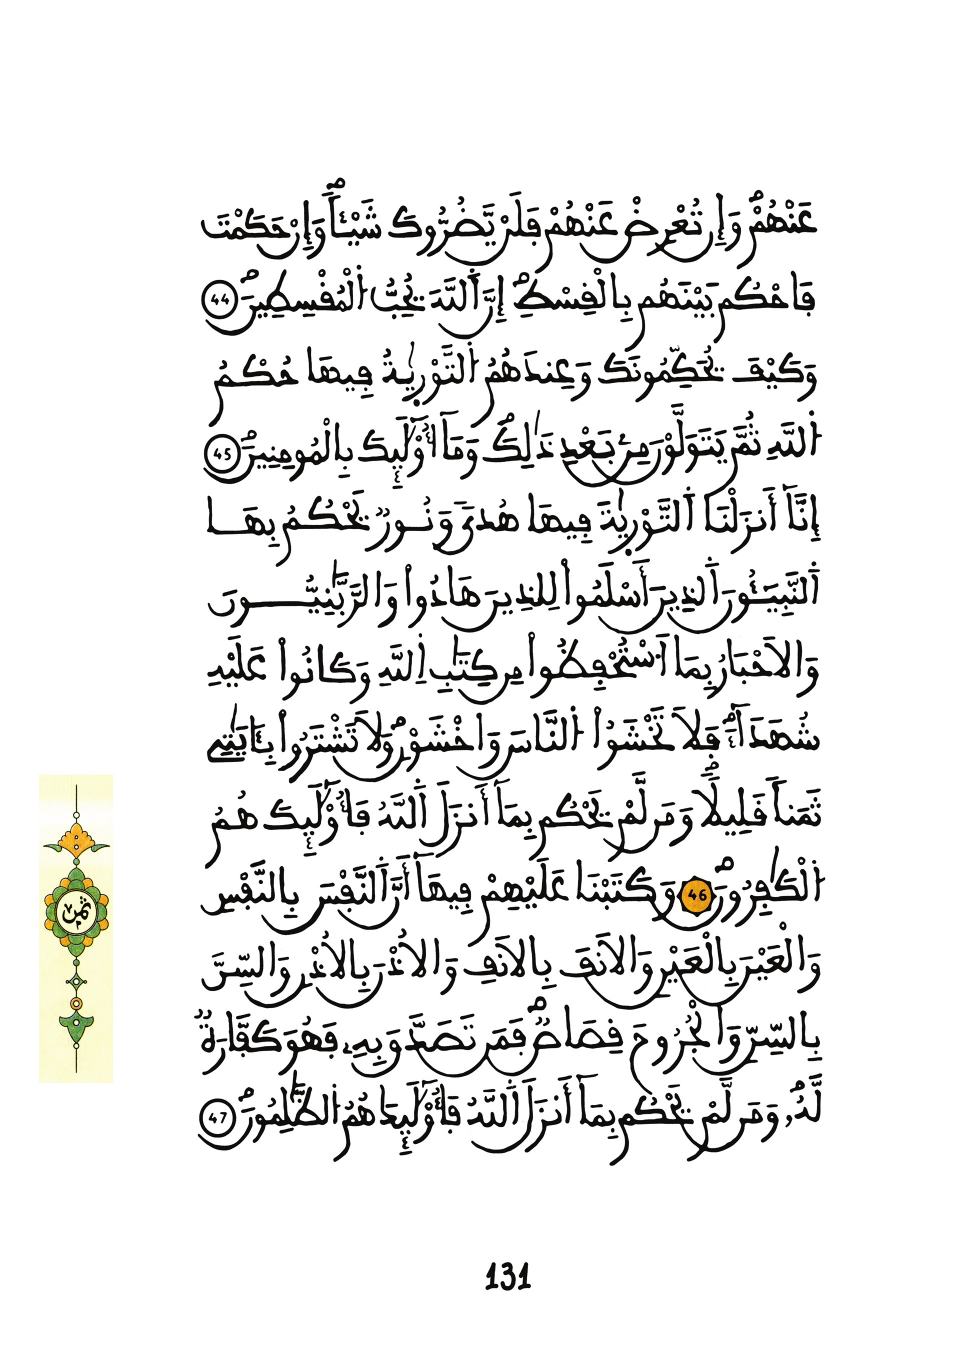 عَنْهُمْ وَإِن تُعْرِضْ عَنْهُمْ فَلَنْ يَّضُرُّوكَ شَيْـٔاً وَإِنْ حَكَمْتَ
فَاحْكُم بَيْنَهُم بِالْقِسْطِ إِنَّ اَ۬للَّهَ يُحِبُّ اُ۬لْمُقْسِطِينَ 44
وَكَيْفَ يُحَكِّمُونَكَ وَعِندَهُمُ اُ۬لتَّوْر۪يٰةُ فِيهَا حُكْمُ
اُ۬للَّهِ ثُمَّ يَتَوَلَّوْنَ مِنۢ بَعْدِ ذَٰلِكَ وَمَآ أُوْلَٰٓئِكَ بِالْمُومِنِينَ 45
إِنَّآ أَنزَلْنَا اَ۬لتَّوْر۪يٰةَ فِيهَا هُدىً وَنُورٌ يَحْكُمُ بِهَا
اَ۬لنَّبِيٓـُٔونَ اَ۬لذِينَ أَسْلَمُواْ لِلذِينَ هَادُواْ وَالرَّبَّٰنِيُّونَ
وَالَاحْبَارُ بِمَا اَ۟سْتُحْفِظُواْ مِن كِتَٰبِ اِ۬للَّهِ وَكَانُواْ عَلَيْهِ
شُهَدَآءَ فَلَا تَخْشَوُاْ اُ۬لنَّاسَ وَاخْشَوْنِ وَلَا تَشْتَرُواْ بِـَٔايَٰتِے
ثَمَناً قَلِيلاً وَمَن لَّمْ يَحْكُم بِمَآ أَنزَلَ اَ۬للَّهُ فَأُوْلَٰٓئِكَ هُمُ
اُ۬لْكَٰفِرُونَ 46 وَكَتَبْنَا عَلَيْهِمْ فِيهَآ أَنَّ اَ۬لنَّفْسَ بِالنَّفْسِ
وَالْعَيْنَ بِالْعَيْنِ وَالَانفَ بِالَانفِ وَالُاذْنَ بِالُاذْنِ وَالسِّنَّ
بِالسِّنِّ وَالْجُرُوحَ قِصَاصٌ فَمَن تَصَدَّقَ بِهِۦ فَهُوَ كَفَّارَةٌ
لَّهُۥ وَمَن لَّمْ يَحْكُم بِمَآ أَنزَلَ اَ۬للَّهُ فَأُوْلَٰٓئِكَ هُمُ اُ۬لظَّٰلِمُونَ 47
ثمن
131